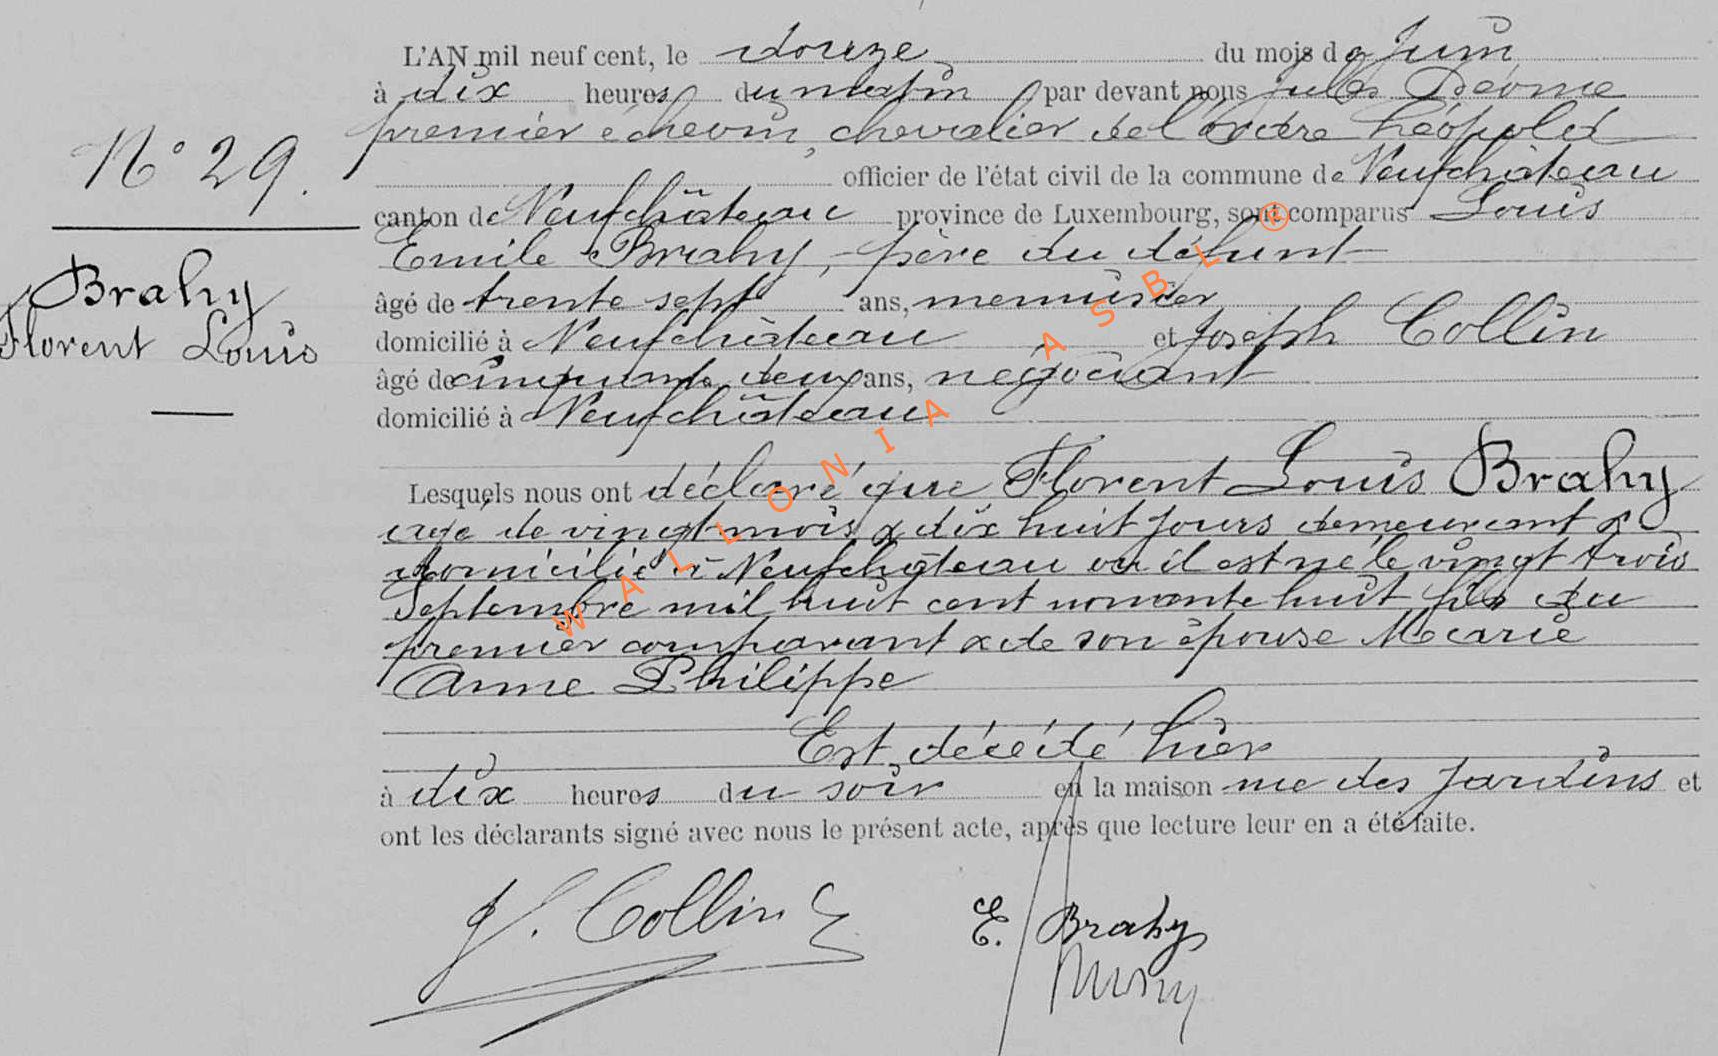 L'AN mil neuf cent, le douze du mois de Juin
à dix heures du matin par devant nous Jules Déome
premier échevin, chevalier de l'ordre Léopold
officier de l'état civil de la commune de Neufchâteau
N° 29.
canton de Neufchâteau province de Luxembourg, sont comparus Louis
Emile Brahy, père du défunt
Brahy
Florent Louis
âgé de trente sept ans, menuisier
domicilié à Neufchâteau et Joseph Collin
âgé de cinquante deux ans, négociant
domicilié à Neufchâteau
Lesquels nous ont déclaré que Florent Louis Brahy
agé de vingt mois & dix huit jours demeurant &
domicilié à Neufchâteau ou il est né le vingt trois
Septembre mil huit cent nonante huit fils du
premier comparant & de son épouse Marie
Anne Philippe
Est décédé hier
à dix heures du soir en la maison rue des Jardins et
ont les déclarants signé avec nous le présent acte, après que lecture leur en a été faite.
J. Collin E. Brahy
WALLONIA ASBL ®